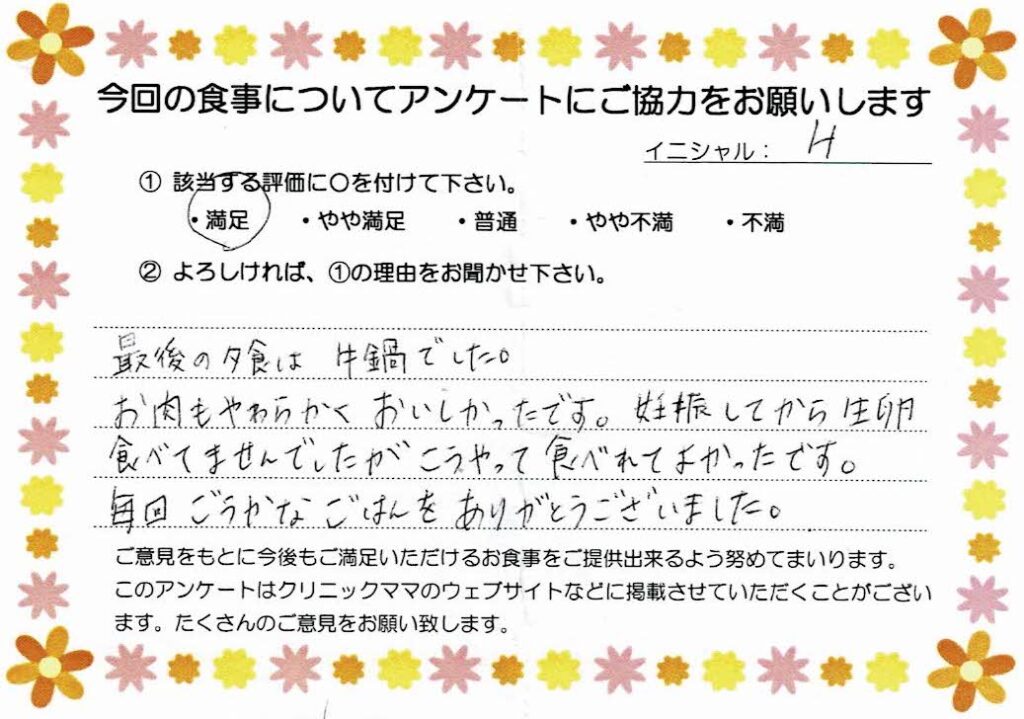 今回の食事についてアンケートにご協力をお願いします
イニシャル： H
① 該当する評価に〇を付けて下さい。
・満足 ・やや満足 ・普通 ・やや不満 ・不満
② よろしければ、①の理由をお聞かせ下さい。
最後の夕食は 牛鍋でした。
お肉もやわらかく おいしかったです。 妊娠してから生卵
食べてませんでしたが こうやって 食べれてよかったです。
毎回 ごうかな ごはんを ありがとうございました。
ご意見をもとに今後もご満足いただけるお食事をご提供出来るよう努めてまいります。
このアンケートはクリニックママのウェブサイトなどに掲載させていただくことがござい
ます。たくさんのご意見をお願い致します。